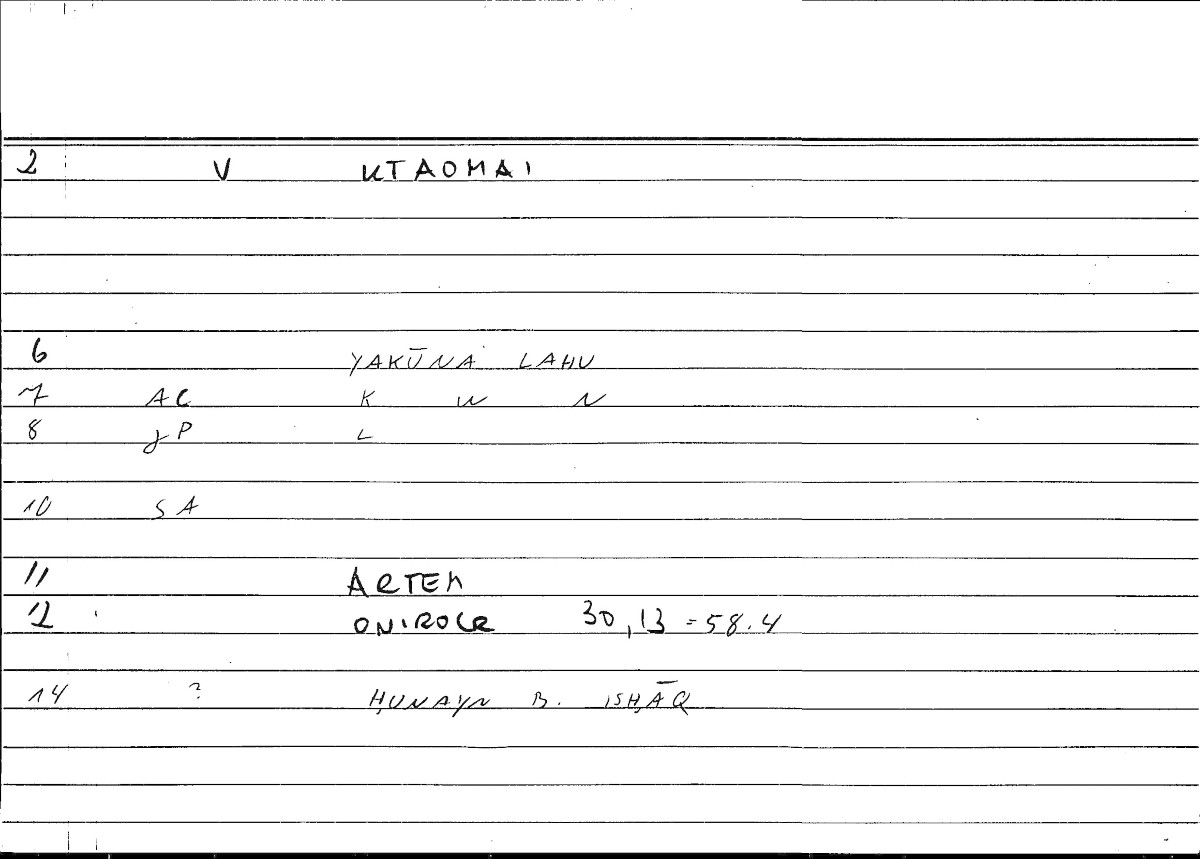 2 V KTAOMAI
6 YAKŪNA LAHU
7 AC K W N
8 JP L
10 SA
11 ARTEM
12 ONIROCR 30,13 = 58.4
14 ? ḤUNAYN B. ISḤĀQ